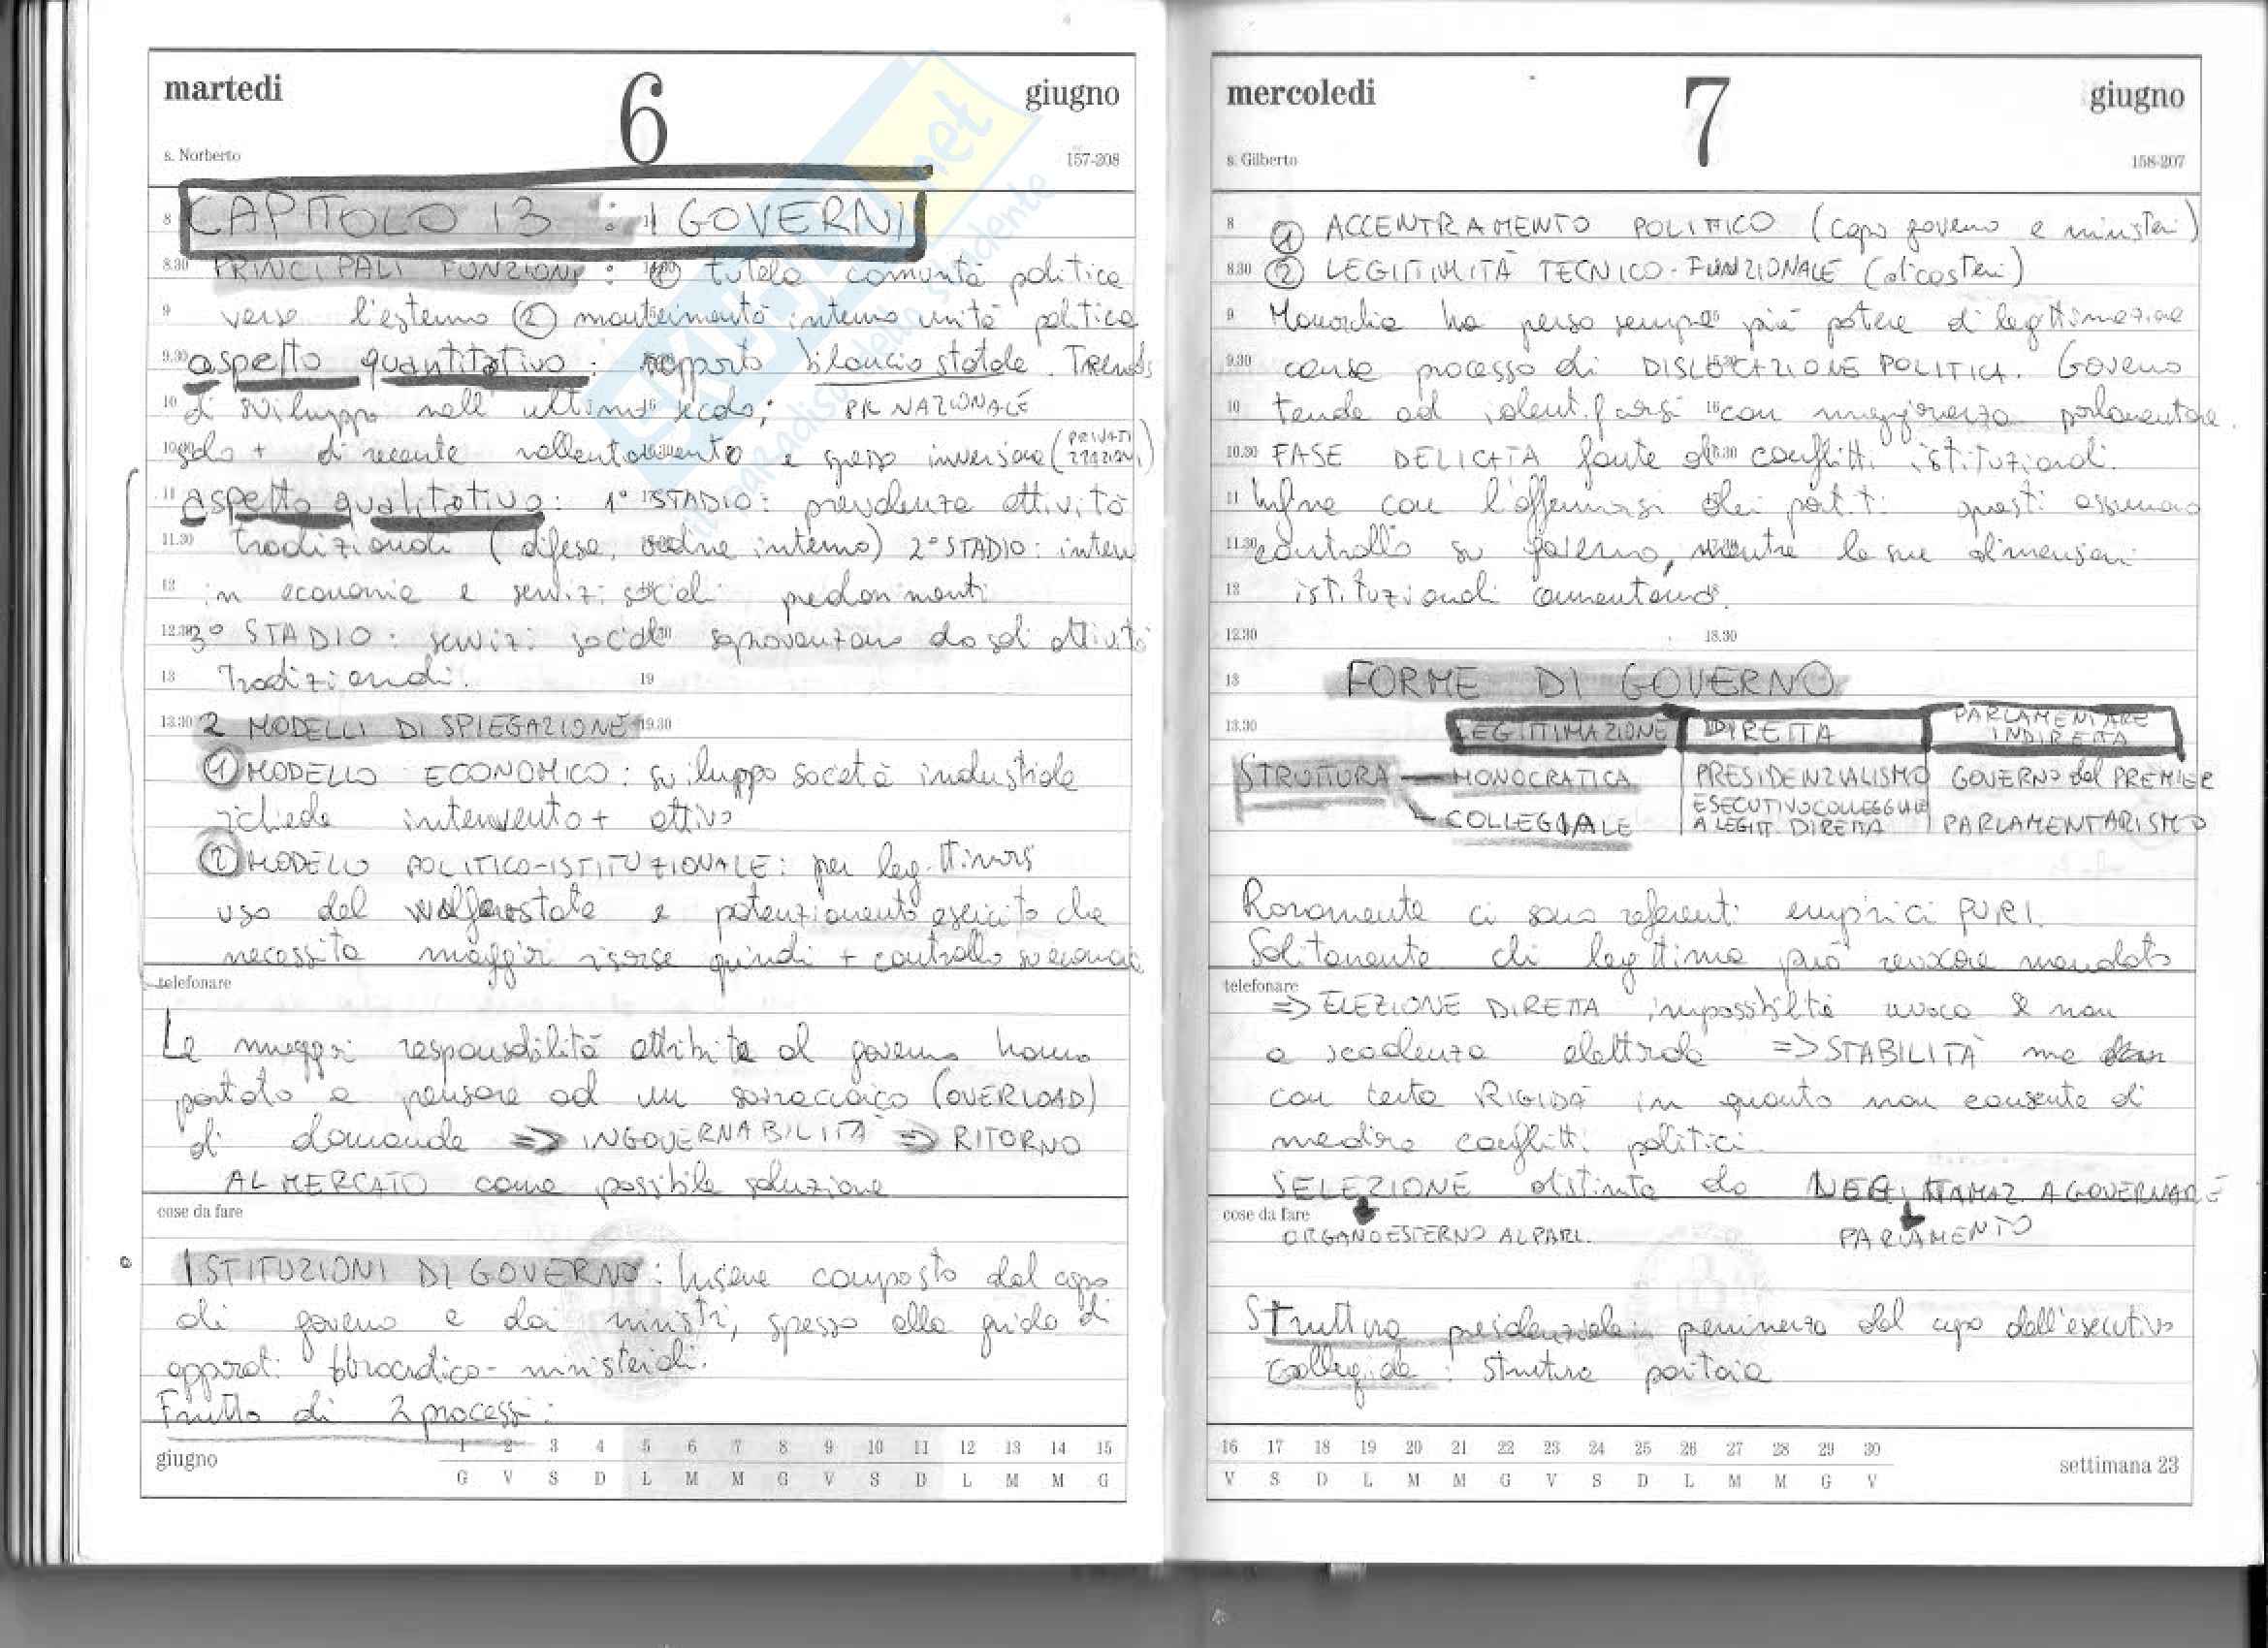 martedì
6
giugno
s. Norberto
157-208
CAPITOLO 13 : I GOVERNI
PRINCIPALI FUNZIONI : ① tutela comunità politica
verso l'esterno ② mantenimento interno unità politica
aspetto quantitativo : rapporto bilancio statale. Trends
di sviluppo nell' ultimo secolo; PR NAZIONALE
solo + di recente rallentamento e spesso inversione (PRIVATI ZZAZIONI)
aspetto qualitativo : 1° STADIO : prevalenza attività
tradizionali (difesa, ordine interno) 2° STADIO : interv
in economia e servizi sociali predominanti
3° STADIO : servizi sociali sopravanzano da soli attività
tradizionali.
2 MODELLI DI SPIEGAZIONE
① MODELLO ECONOMICO : sviluppo società industriale
richiede intervento + attivo
② MODELLO POLITICO-ISTITUZIONALE : per legittimarsi
uso del welfare state e potenziamento esercito che
necessita maggiori risorse quindi + controllo su economia
telefonare
Le maggiori responsabilità attribuite al governo hanno
portato a pensare ad un sovraccarico (OVERLOAD)
di domande => INGOVERNABILITÀ => RITORNO
AL MERCATO come possibile soluzione
cose da fare
ISTITUZIONI DI GOVERNO : Insieme composto dal capo
di governo e dai ministri, spesso alla guida di
apparati burocratico-ministeriali.
Frutto di 2 processi :
giugno
1 2 3 4 5 6 7 8 9 10 11 12 13 14 15
G V S D L M M G V S D L M M G
mercoledì
7
giugno
s. Gilberto
158-207
① ACCENTRAMENTO POLITICO (capo governo e ministri)
② LEGITTIMITÀ TECNICO-FUNZIONALE (dicasteri)
Monarchia ha perso sempre più potere di legittimazione
causa processo di DISLOCAZIONE POLITICA. Governo
tende ad identificarsi con maggioranza parlamentare.
FASE DELICATA fonte di conflitti istituzionali.
Infine con l'affermarsi dei partiti questi assumono
controllo su governo, mentre le sue dimensioni
istituzionali aumentano.
FORME DI GOVERNO
LEGITTIMAZIONE DIRETTA PARLAMENTARE INDIRETTA
STRUTTURA MONOCRATICA PRESIDENZIALISMO GOVERNO del PREMIER
COLLEGIALE ESECUTIVO COLLEGGIALE A LEGITT. DIRETTA PARLAMENTARISMO
Raramente ci sono referenti empirici PURI.
Solitamente chi legittima può revocare mandato
telefonare
=> ELEZIONE DIRETTA impossibilità revoca se non
a scadenza elettorale => STABILITÀ ma
con certa RIGIDA in quanto non consente di
mediare conflitti politici.
SELEZIONE distinta da LEGITTAMAZ. A GOVERNARE
cose da fare
ORGANO ESTERNO AL PARL. PARLAMENTO
Struttura presidenziale : preminenza del capo dell'esecutivo
Collegiale : struttura paritaria
16 17 18 19 20 21 22 23 24 25 26 27 28 29 30
V S D L M M G V S D L M M G V
settimana 23